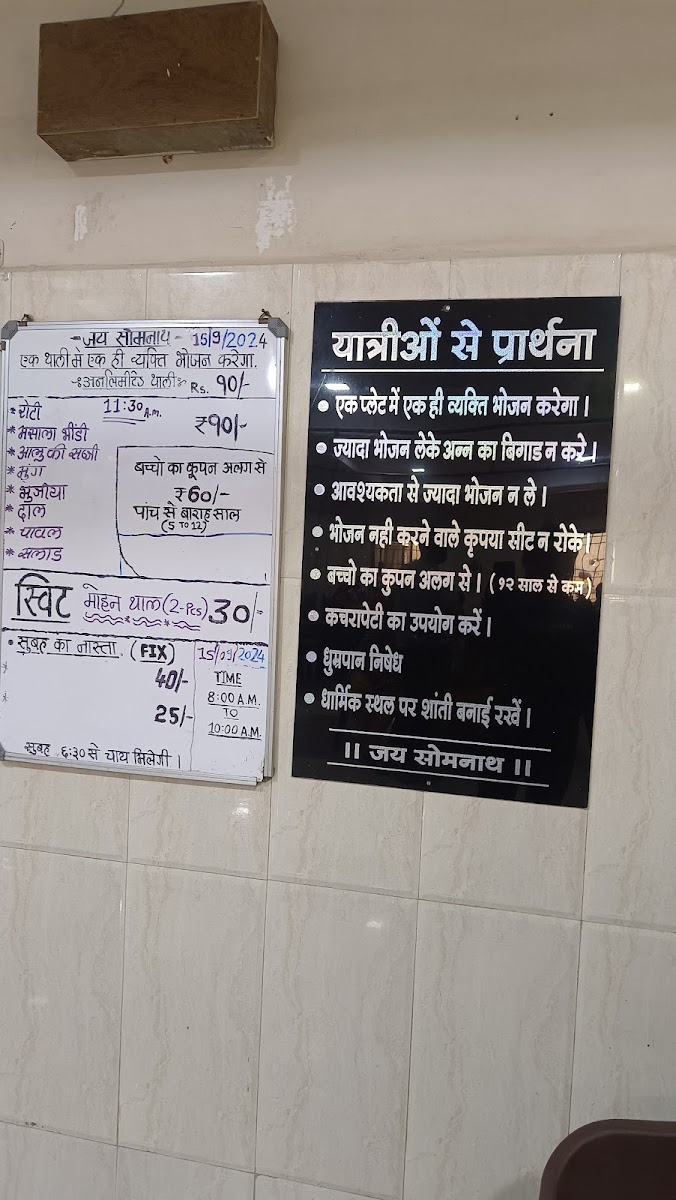 -जय सोमनाथ- 15/9/2024
एक थाली मे एक ही व्यक्ति भोजन करेगा.
-:अनलिमीटेड थाली:- Rs. ९०/-
11:30 A.m.
₹९०/-
* रोटी
* मसाला भींडी
* आलु की सब्जी
* मुंग
* भुजीया
* दाल
* चावल
* सलाड
बच्चो का कूपन अलग से
₹60/-
पांच से बाराह साल
(5 TO 12)
स्विट मोहन थाल (2-Pcs) 30/-
• सुबह का नास्ता. (FIX) 15/09/2024
40/-
25/-
TIME
8:00 A.M.
TO
10:00 A.M.
सुबह ६:३० से चाय मिलेगी।
यात्रीओं से प्रार्थना
• एक प्लेट में एक ही व्यक्ति भोजन करेगा।
• ज्यादा भोजन लेके अन्न का बिगाड न करे।
• आवश्यकता से ज्यादा भोजन न ले।
• भोजन नही करने वाले कृपया सीट न रोके।
• बच्चो का कुपन अलग से। (१२ साल से कम)
• कचरापेटी का उपयोग करें।
• धुम्रपान निषेध
• धार्मिक स्थल पर शांती बनाई रखें।
।। जय सोमनाथ ।।